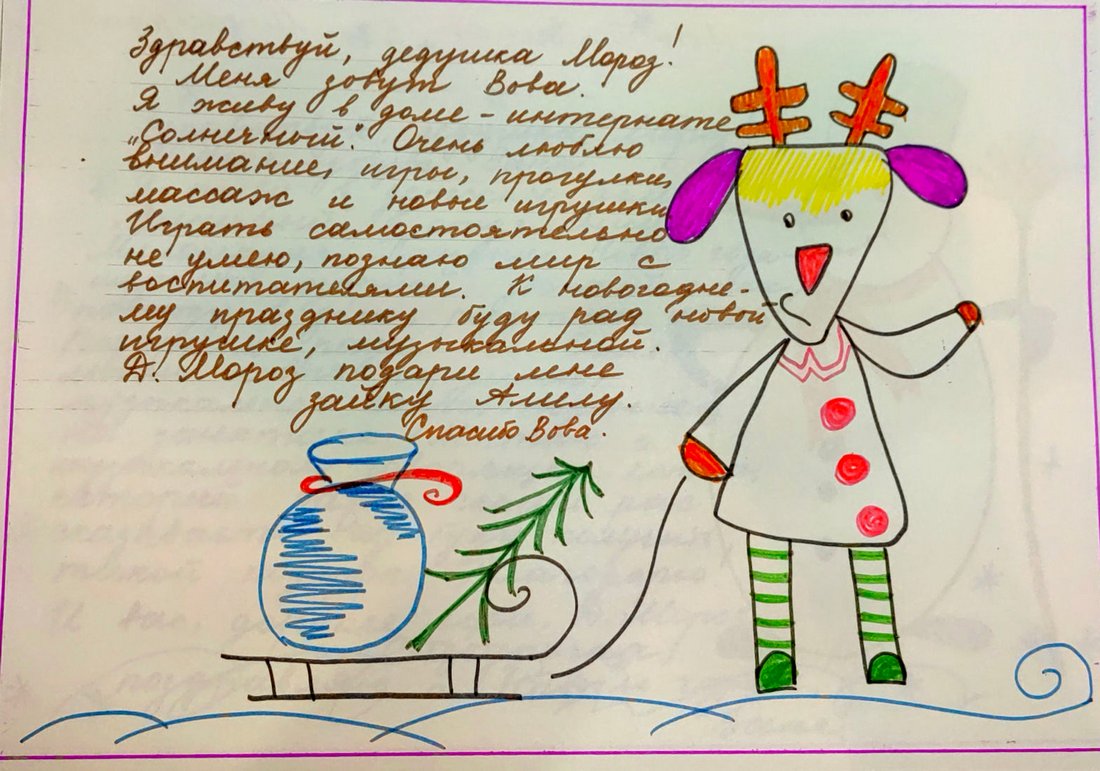 Здравствуй, дедушка Мороз!
Меня зовут Вова.
Я живу в доме - интернате
„Солнечный". Очень люблю
внимание, игры, прогулки,
массаж и новые игрушки.
Играть самостоятельно
не умею, познаю мир с
воспитателями. К новогодне-
му празднику буду рад новой
игрушке, музыкальной.
Д. Мороз подари мне
зайку Алилу.
Спасибо Вова.